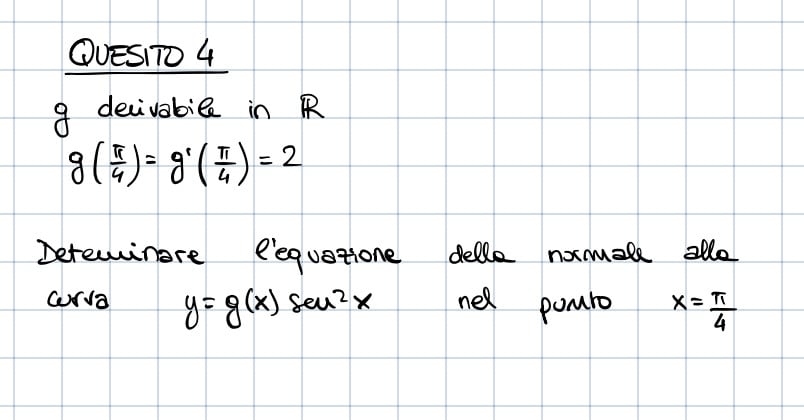 QUESITO 4
g derivabile in ℝ
g(π/4) = g'(π/4) = 2
Determinare l'equazione della normale alla
curva y = g(x) sen² x nel punto x = π/4